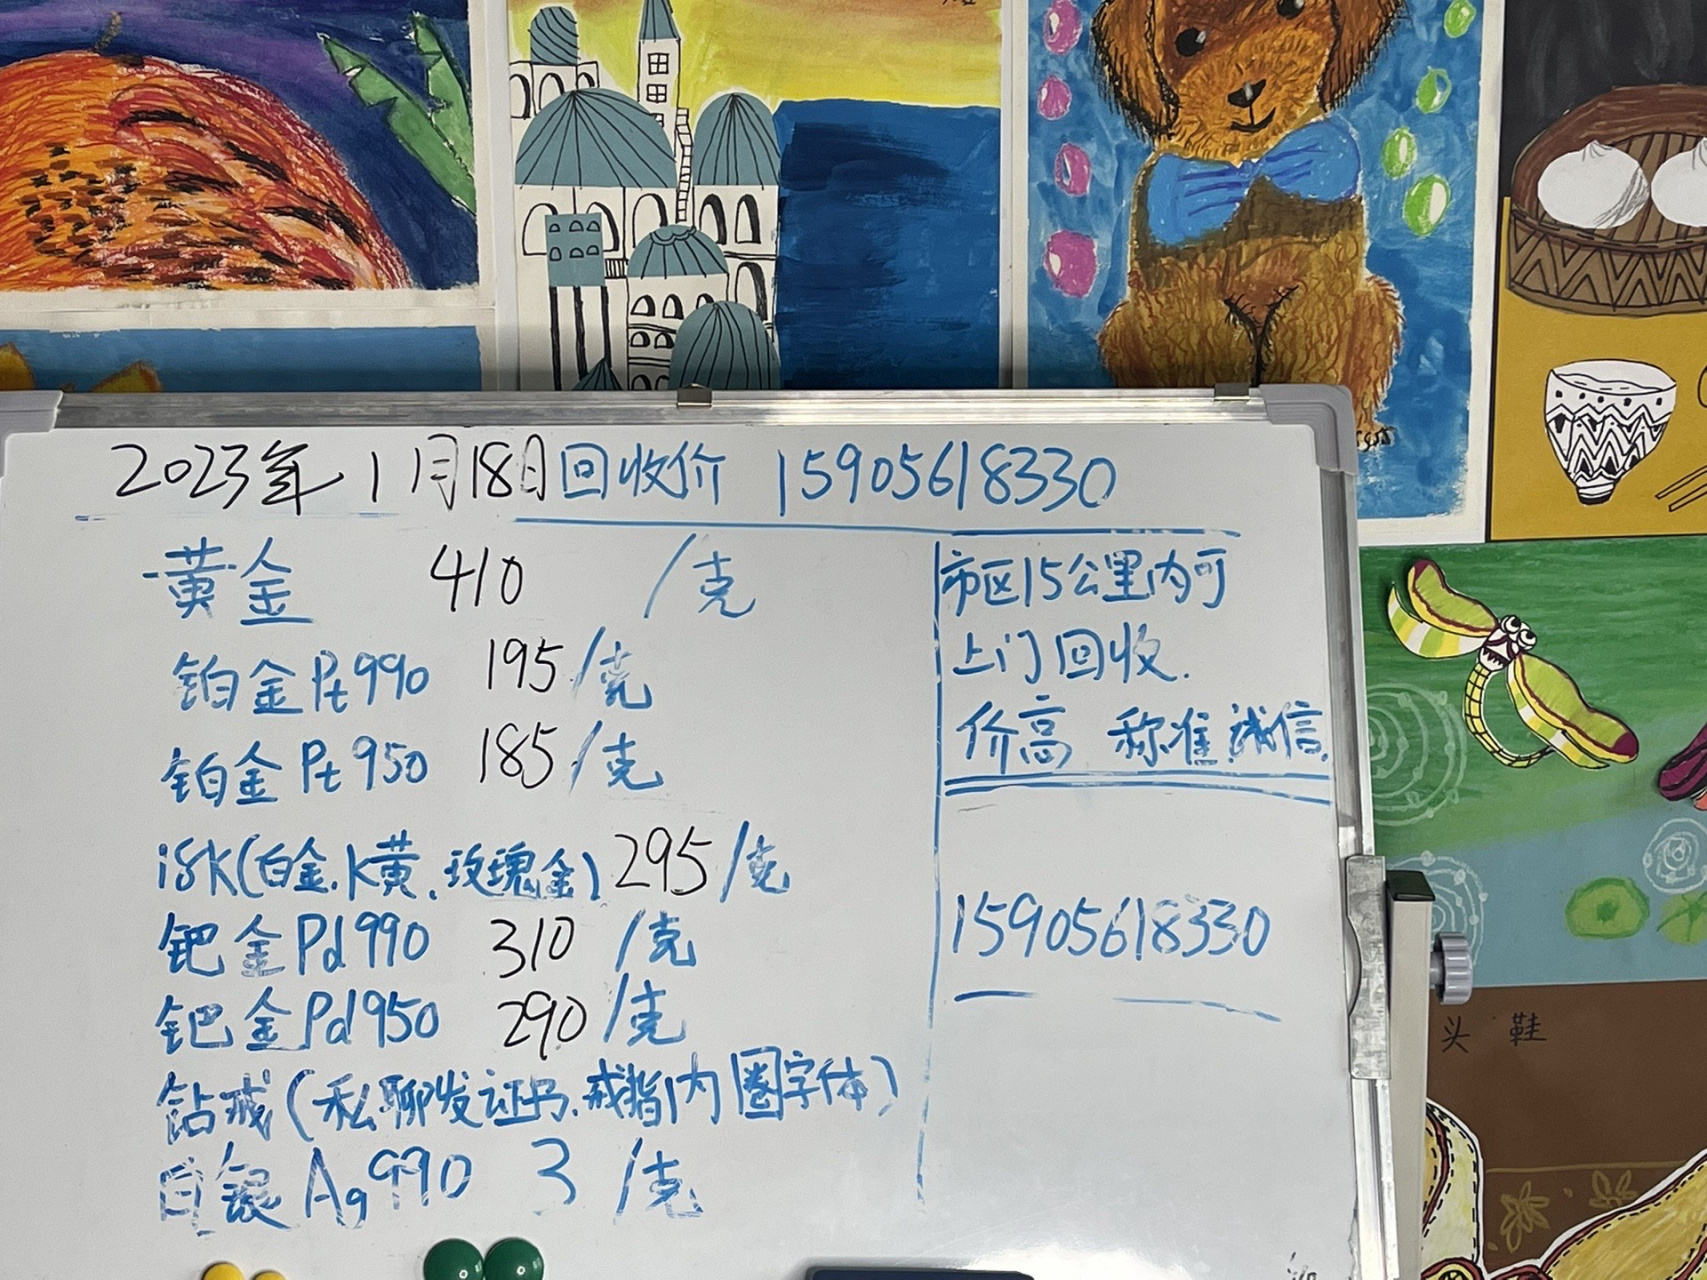 2023年1月18日回收价 15905618330
黄金 410 /克
铂金Pt990 195/克
铂金Pt950 185/克
18K(白金.K黄.玫瑰金)295/克
钯金Pd990 310 /克
钯金Pd950 290/克
钻戒(私聊发证号.戒指内圈字体)
白银Ag990 3 /克
市区15公里内可
上门回收.
价高 称准 诚信
15905618330
头 鞋